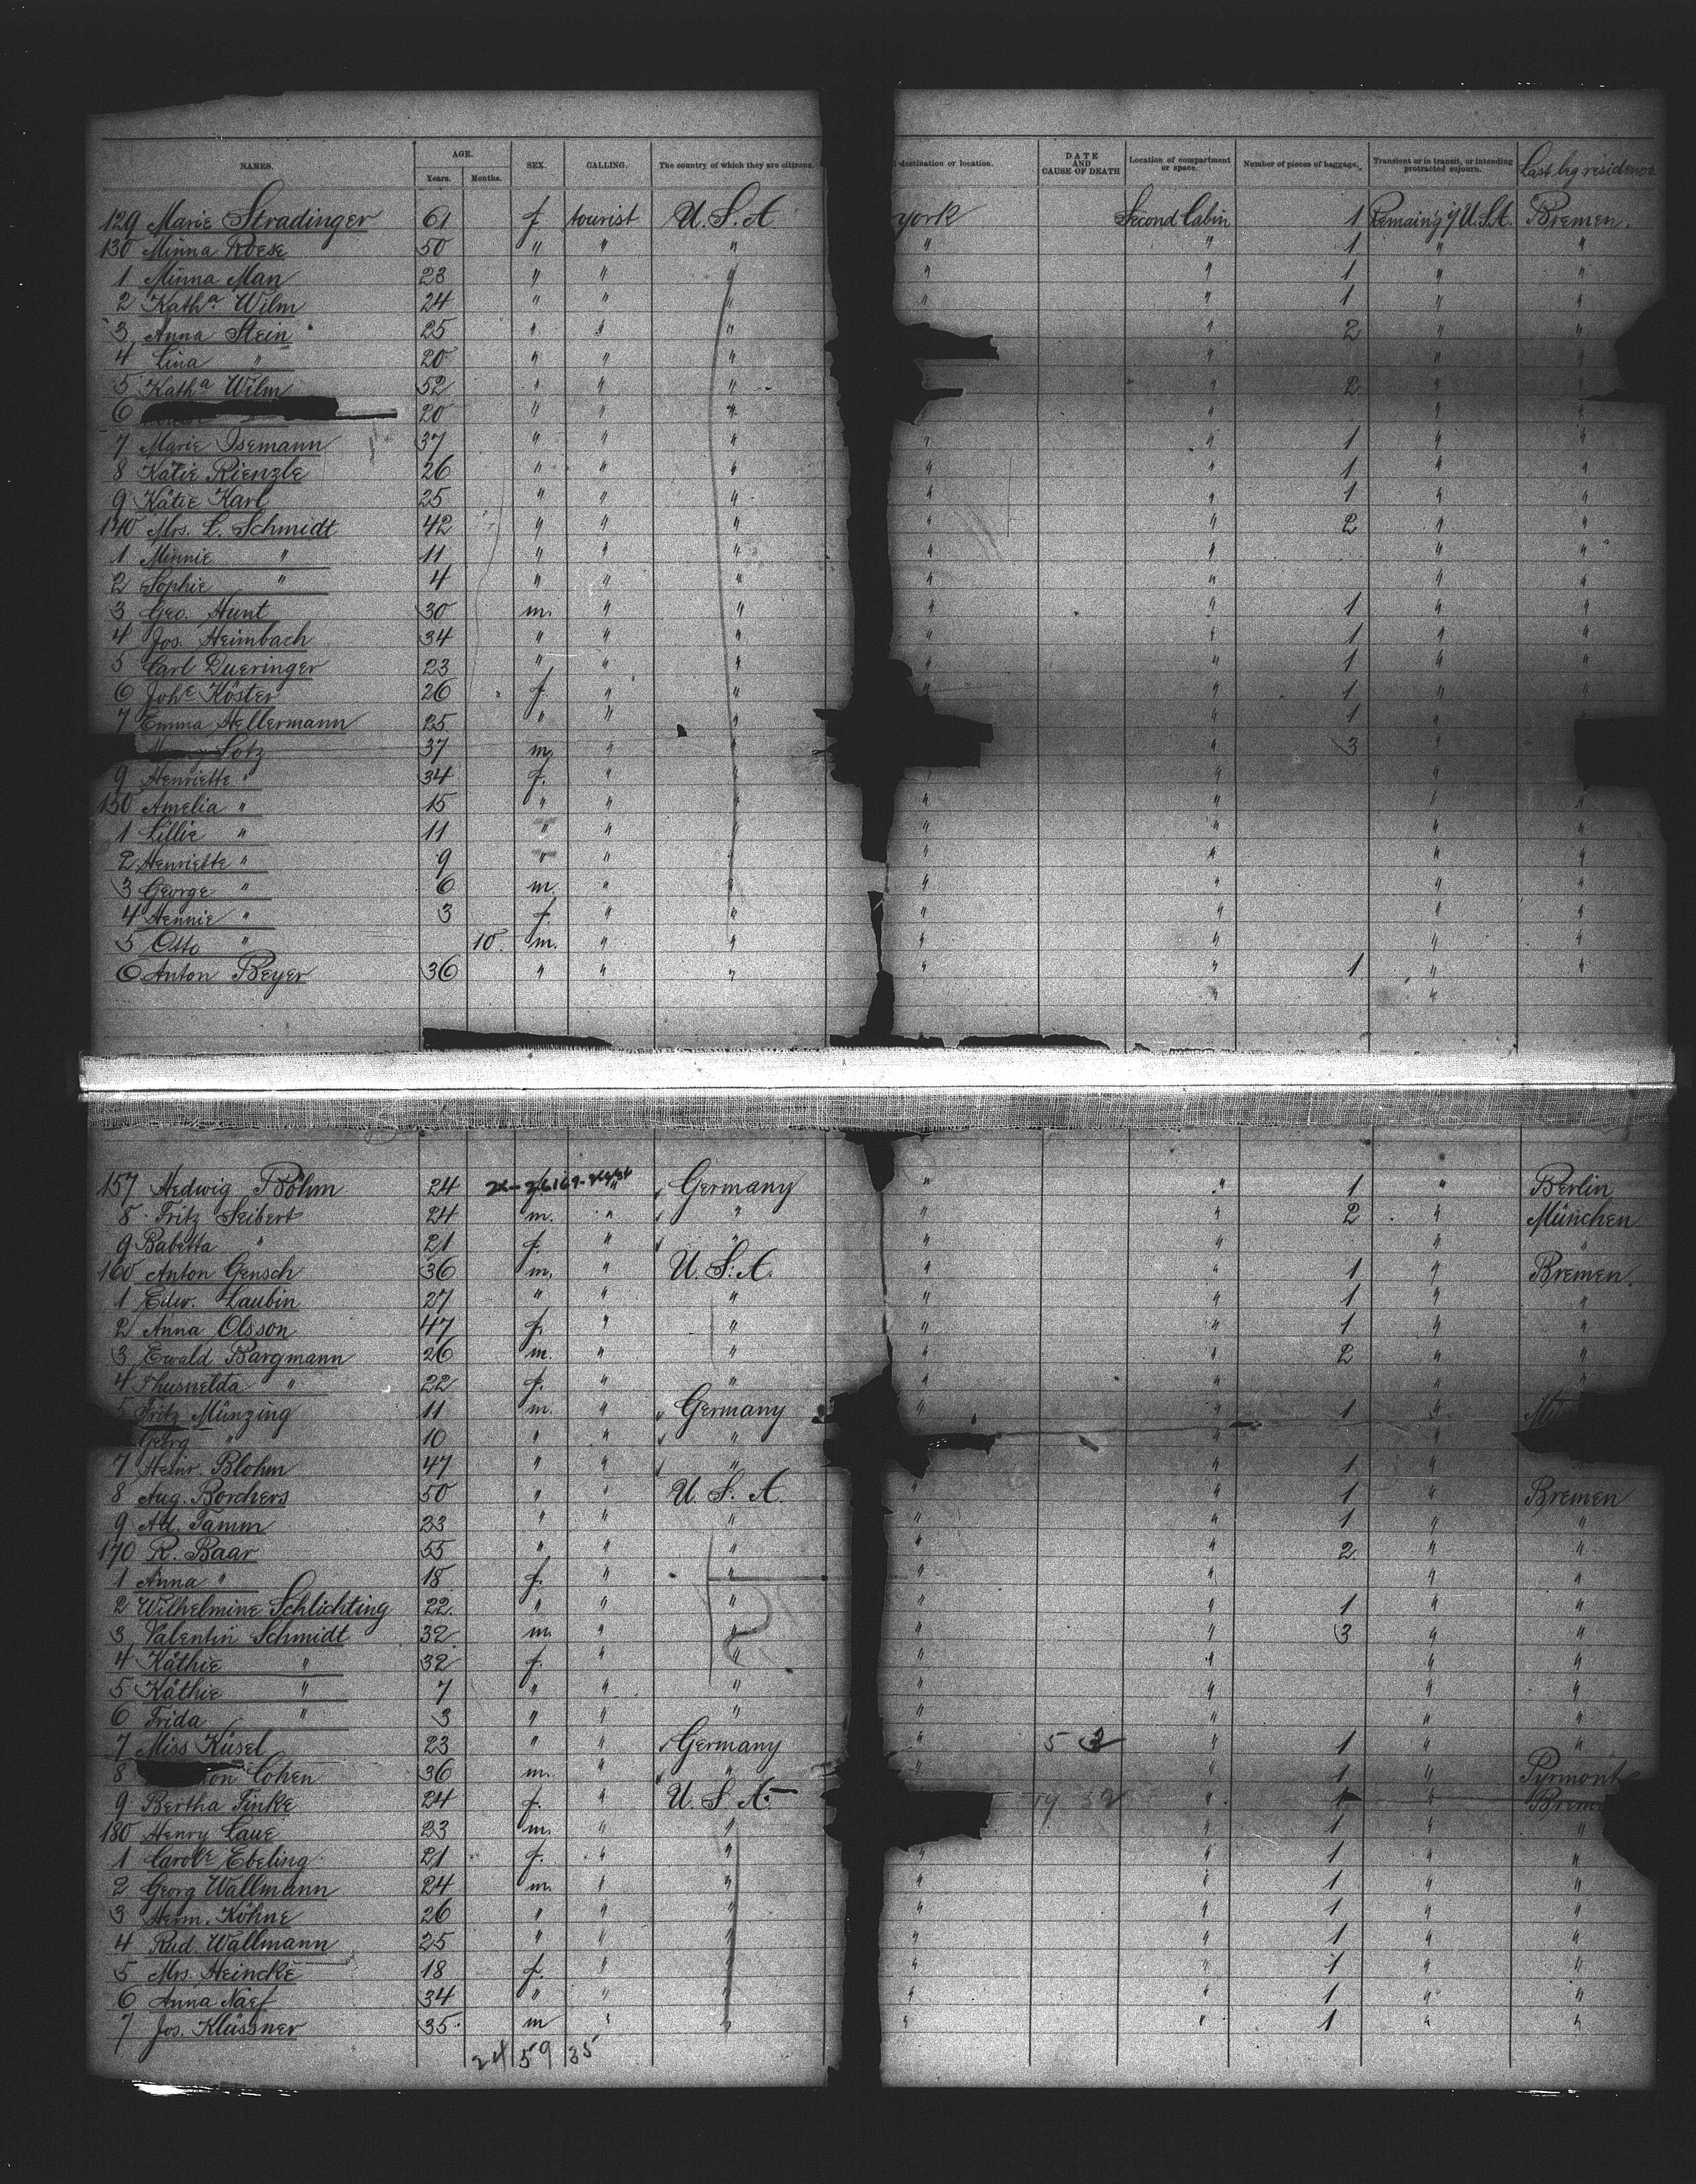 NAMES. AGE. Years. Months. SEX. CALLING. The country of which they are citizens. destination or location. DATE AND CAUSE OF DEATH Location of compartment or space. Number of pieces of baggage. Transient or in transit, or intending protracted sojourn. Last leg residence
129 Marie Stradinger 61 f tourist U.S.A. york Second Cabin 1 Remain'g i/ U.S.A. Bremen.
130 Minna Roese 50 " " " 1 " "
1 Minna Man 23 " " " " " 1 " "
2 Kath.a Wilm 24 " " " " " 1 " "
3 Anna Stein 25 " " " " 2 " "
4 Lina " 20 " " " " " "
5 Kath.a Wilm 52 " " " " 2 " "
6 20 " " " " " " "
7 Marie Isemann 37 " " " " " 1 " "
8 Katie Rienzle 26 " " " " " 1 " "
9 Kätie Karl 25 " " " " " 1 " "
140 Mrs. L. Schmidt 42 " " " " " 2 " "
1 Minnie " 11 " " " " " " "
2 Sophie " 4 " " " " " " "
3 Geo. Hunt 30 m. " " " " 1 " "
4 Jos. Heimbach 34 " " " " " 1 " "
5 Carl Dueringer 23 " " " " " 1 " "
6 Joh.e Köster 26 f. " " " " 1 " "
7 Emma Hellermann 25 " " " " 1 "
Lotz 37 m. " " " 3 "
9 Henriette " 34 f. " " " " "
150 Amelia " 15 " " " " " " "
1 Lillie " 11 " " " " " " "
2 Henriette " 9 " " " " " " "
3 George " 6 m. " " " " " "
4 Hennie " 3 f. " " " " " "
5 Otto " 10. m. " " " " " "
6 Anton Beyer 36 " " " " " 1 " "
" "
157 Hedwig Böhm 24 " Germany " " 1 " Berlin
8 Fritz Seibert 24 m. " " " " 2 " München
9 Babetta " 21 f. " " " " " "
160 Anton Gensch 36 m. " U.S.A. " " 1 " Bremen.
1 Edw. Laubin 27 " " " " " 1 " "
2 Anna Olsson 47 f. " " " " 1 " "
3 Ewald Bargmann 26 m. " " " " 2 " "
4 Thusnelda " 22 f. " " " " " "
5 Fritz Münzing 11 m. " Germany " " 1 "
Georg " 10 " " " " "
7 Heinr. Blohm 47 " " " " " 1 " "
8 Aug. Borchers 50 " " U.S.A. " " 1 " Bremen
9 Ad. Tamm 23 " " " " " 1 " "
170 R. Baar 55 " " " " " 2 " "
1 Anna " 18 f. " " " " " "
2 Wilhelmine Schlichting 22. " " " " " 1 " "
3 Valentin Schmidt 32. m. " " " " 3 " "
4 Käthie " 32 f. " " " " " "
5 Käthie " 7 " " " " " " "
6 Frida " 3 " " " " " " "
7 Miss Küsel 23 " " Germany " 5 " 1 " "
8 Cohen 36 m. " " " " 1 " Pyrmont
9 Bertha Finke 24 f. " U.S.A. 19 32 " 1 " Brem
180 Henry Laue 23 m. " " " 1 " "
1 Carol.e Ebeling 21 f. " " " " 1 " "
2 Georg Wallmann 24 m. " " " " 1 " "
3 Herm. Köhne 26 " " " " " 1 " "
4 Rud. Wallmann 25 " " " " " 1 " "
5 Mrs. Heincke 18 f. " " " " 1 " "
6 Anna Naef 34 " " " " " 1 " "
7 Jos. Klüssner 35. m " " " " 1 " "
24 59 35